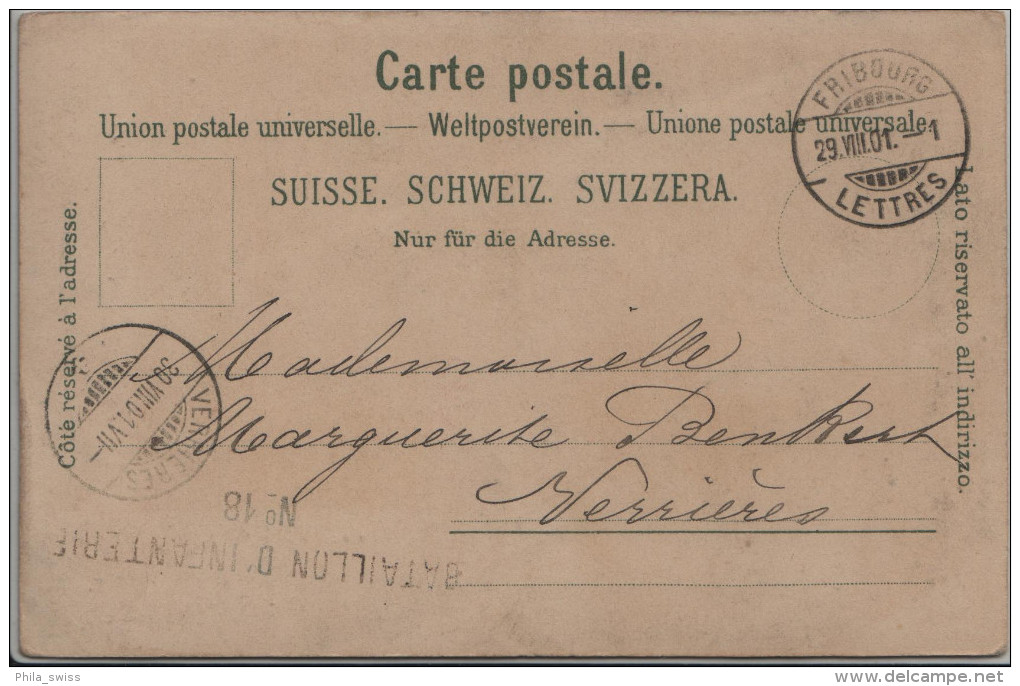 Carte postale.
Union postale universelle. — Weltpostverein. — Unione postale universale.
SUISSE. SCHWEIZ. SVIZZERA.
Nur für die Adresse.
Côté réservé à l'adresse.
Lato riservato all' indirizzo.
FRIBOURG
29.VIII.01.—1
LETTRES
Mademoiselle
Marguerite Benkert
Verrières
30.VIII.01.VII—
VERRIÈRES
BATAILLON D'INFANTERIE
No 18
Phila_swiss
delcampe.net